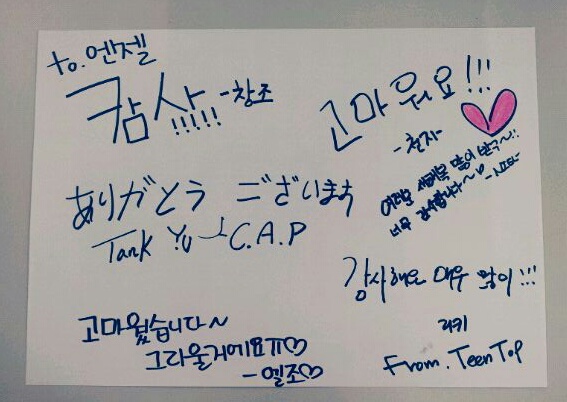 to. 엔젤
캄사!!!!!! -창조
고마워요!!!
-천지-
여러분 새해복 많이 받구~!!
너무 감사합니다~♡ -니엘-
ありがとう ございます
Tank Yu C.A.P
감사해요 매우 많이!!!
리키
고마웠습니다~
그리울거에요ㅠ♡
-엘조♡
From. Teen Top